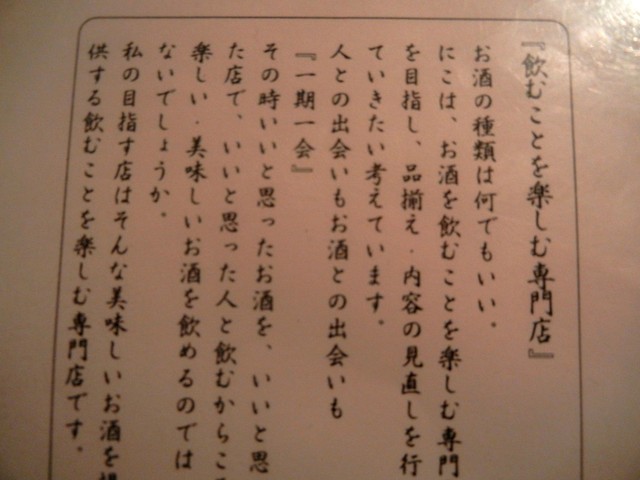 『飲むことを楽しむ専門店』
お酒の種類は何でもいい。
にこは、お酒を飲むことを楽しむ専門
を目指し、品揃え・内容の見直しを行
ていきたい考えています。
人との出会いもお酒との出会いも
『一期一会』
その時いいと思ったお酒を、いいと思
た店で、いいと思った人と飲むからこ
楽しい・美味しいお酒を飲めるのでは
ないでしょうか。
私の目指す店はそんな美味しいお酒を
供する飲むことを楽しむ専門店です。